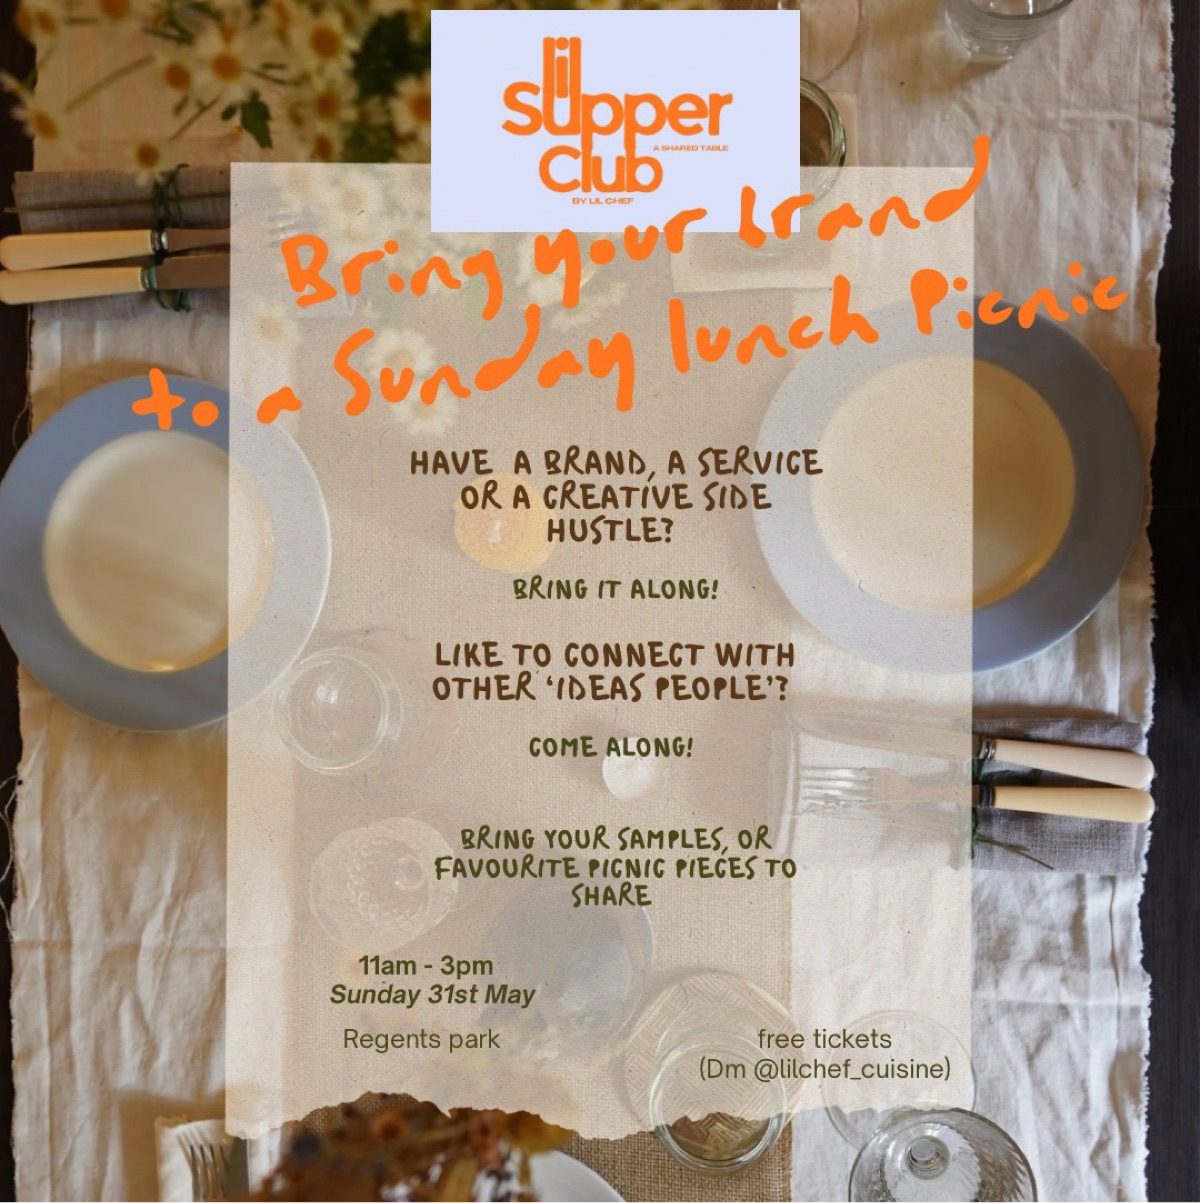 lil
Supper
A SHARED TABLE
Club
BY LIL CHEF
Bring your brand
to a Sunday lunch Picnic
HAVE A BRAND, A SERVICE
OR A CREATIVE SIDE
HUSTLE?
BRING IT ALONG!
LIKE TO CONNECT WITH
OTHER ‘IDEAS PEOPLE’?
COME ALONG!
BRING YOUR SAMPLES, OR
FAVOURITE PICNIC PIECES TO
SHARE
11am - 3pm
Sunday 31st May
Regents park
free tickets
(Dm @lilchef_cuisine)